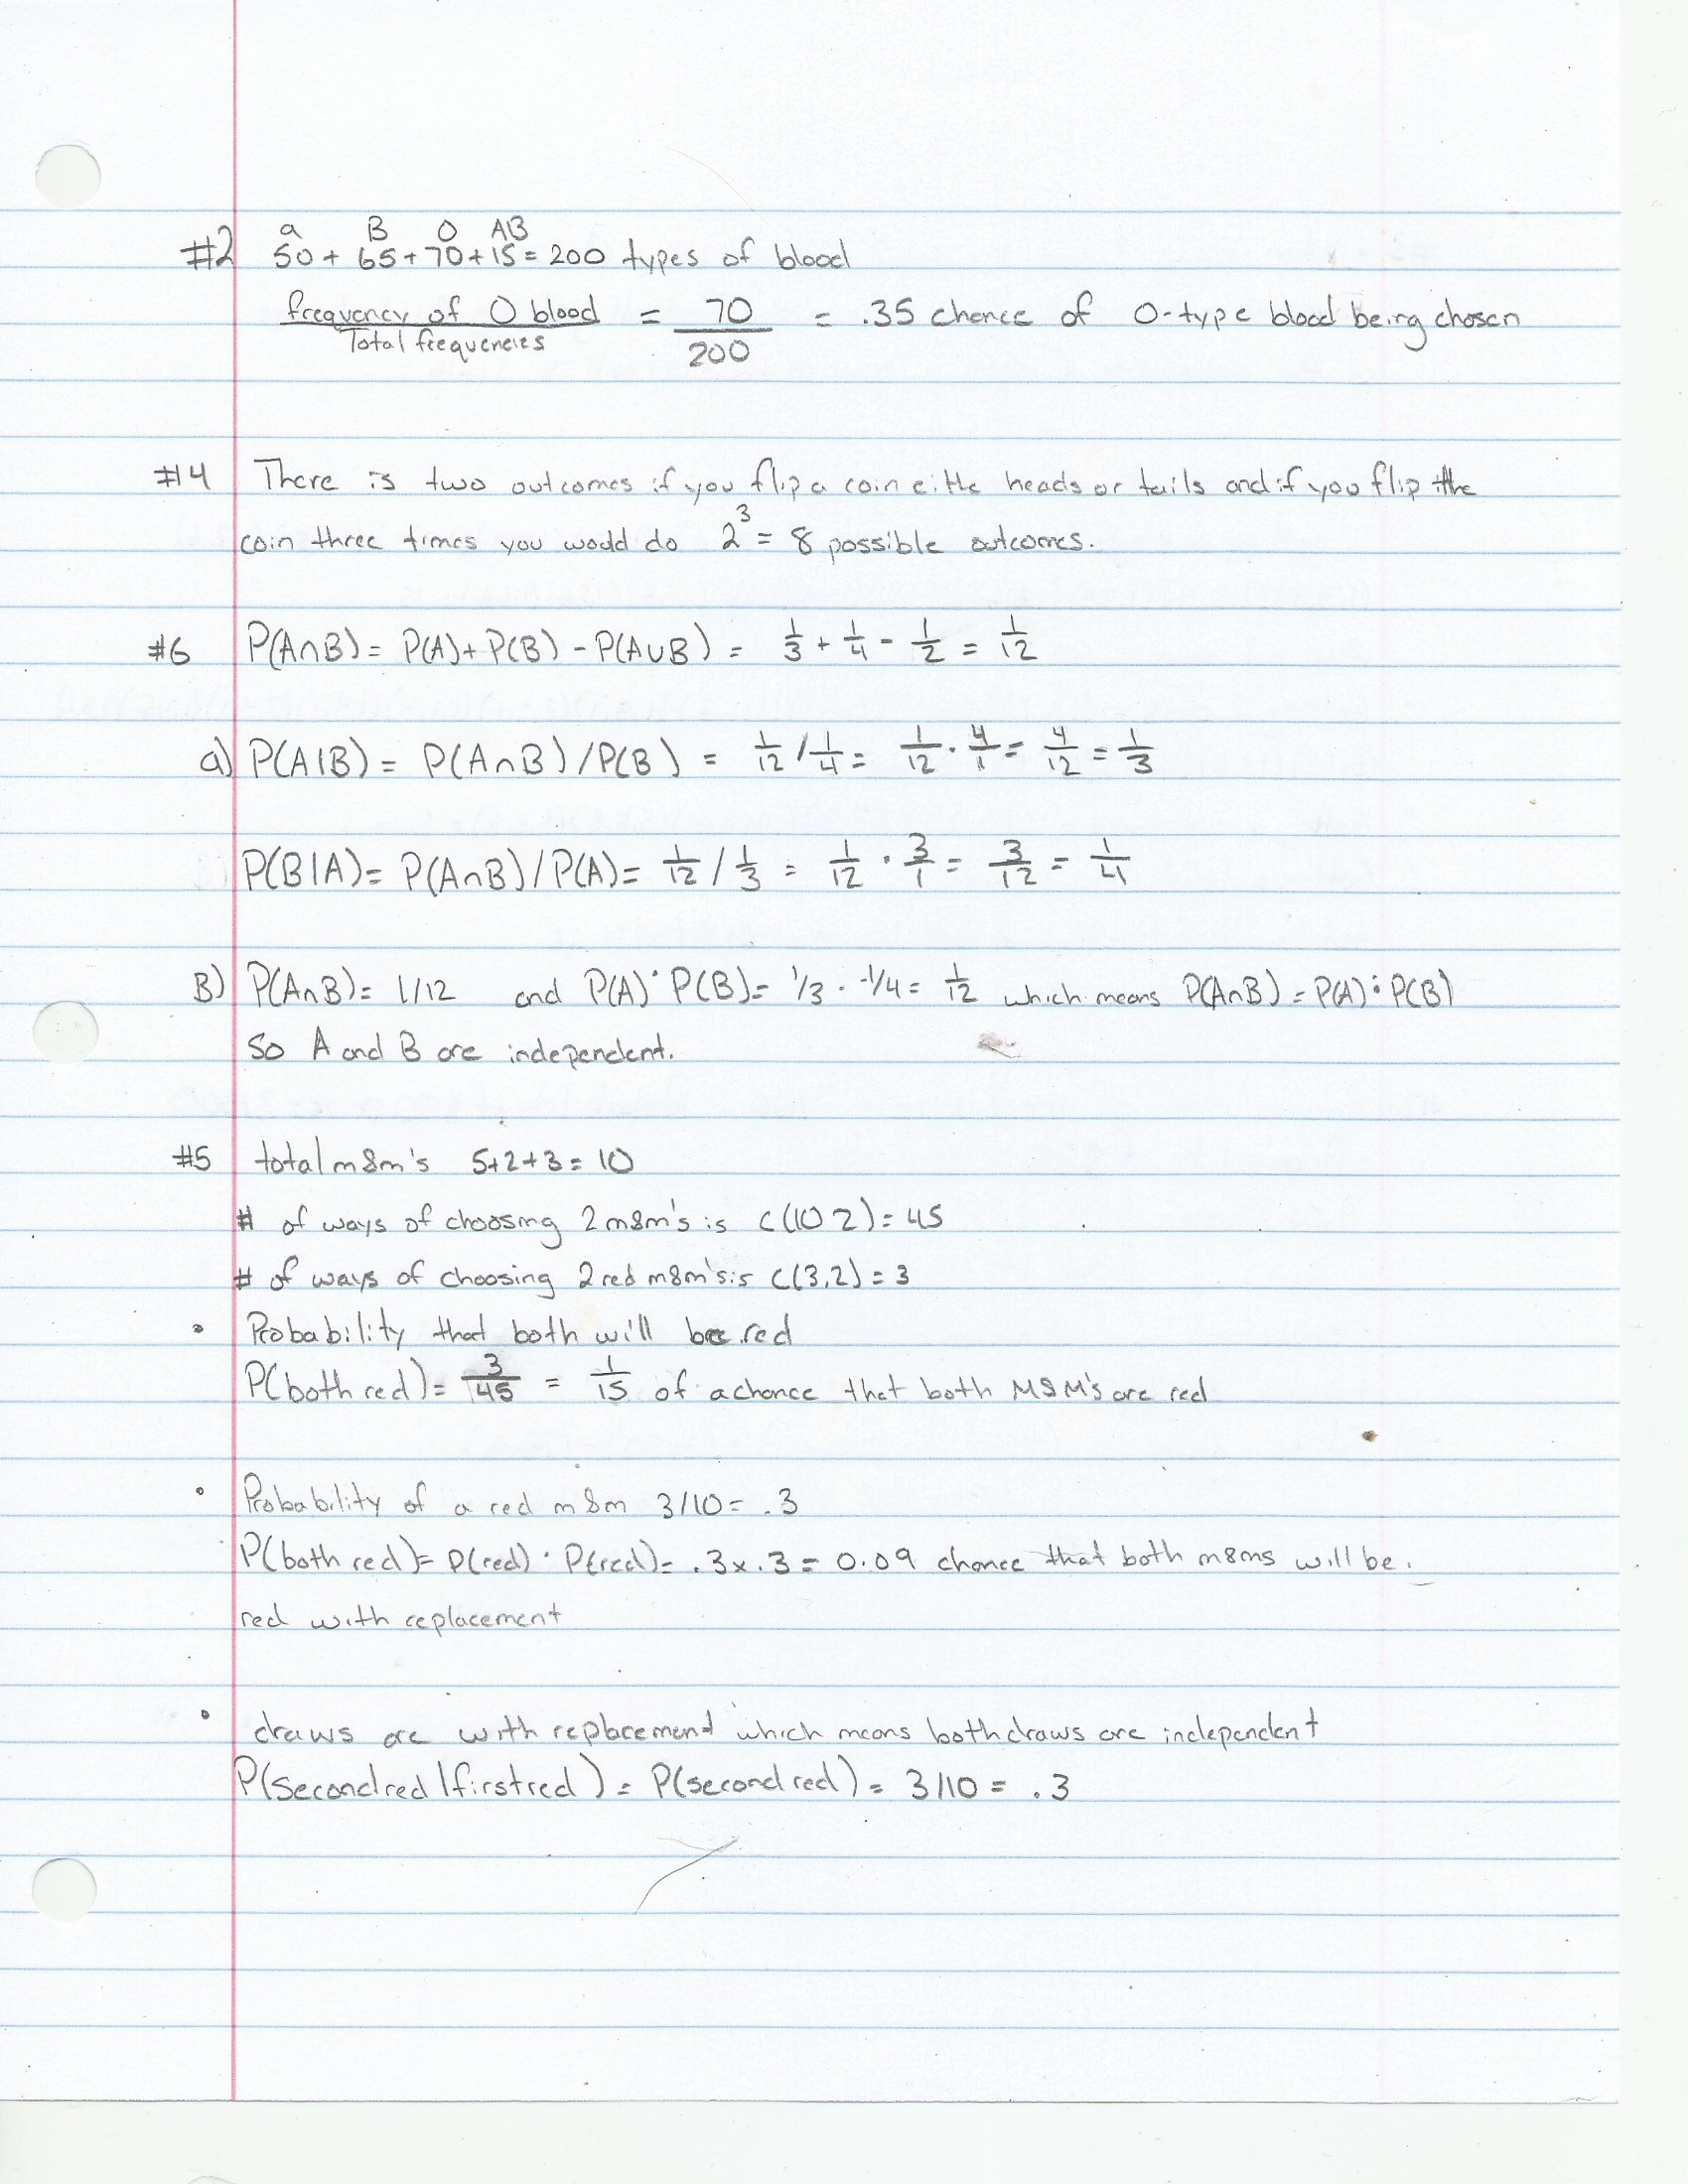 a B O AB
#2 50 + 65 + 70 + 15 = 200 types of blood
frequency of O blood / Total frequencies = 70 / 200 = .35 chance of O-type blood being chosen
#14 There is two outcomes if you flip a coin eithe heads or tails and if you flip the
coin three times you would do 2³ = 8 possible outcomes.
#6 P(A∩B) = P(A) + P(B) - P(A∪B) = 1/3 + 1/4 - 1/2 = 1/12
a) P(A|B) = P(A∩B) / P(B) = 1/12 / 1/4 = 1/12 · 4/1 = 4/12 = 1/3
P(B|A) = P(A∩B) / P(A) = 1/12 / 1/3 = 1/12 · 3/1 = 3/12 = 1/4
B) P(A∩B) = 1/12 and P(A) · P(B) = 1/3 · 1/4 = 1/12 which means P(A∩B) = P(A) · P(B)
So A and B are independent.
#5 total m&m's 5+2+3 = 10
# of ways of choosing 2 m&m's is C(10 2) = 45
# of ways of choosing 2 red m&m's is C(3,2) = 3
• Probability that both will be red
P(both red) = 3/45 = 1/15 of a chance that both M&M's are red
• Probability of a red m&m 3/10 = .3
P(both red) = P(red) · P(red) = .3 x .3 = 0.09 chance that both m&ms will be
red with replacement
• draws are with replacement which means both draws are independent
P(second red | first red) = P(second red) = 3/10 = .3